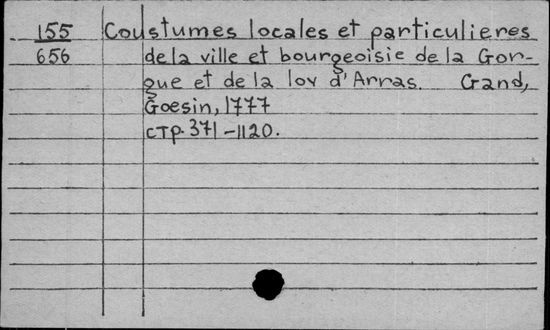 155 Coustumes locales et particulieres
656 de la ville et bourgeoisie de la Gor-
gue et de la loy d'Arras. Gand,
Goesin, 1777
стр. 371-1120.